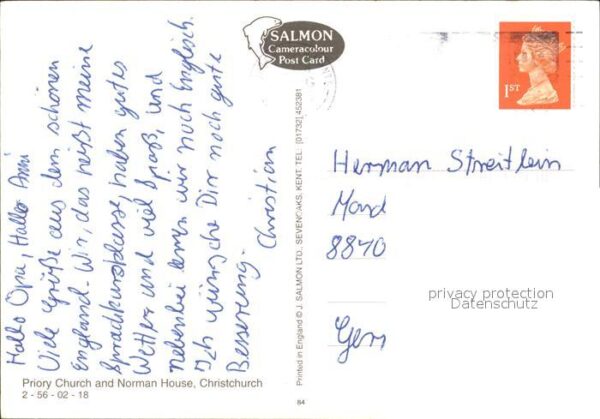 Hallo Opa, Hallo Ami
Viele Grüße aus dem schönen
England. Wir, das heißt meine
Sprachkursklasse, haben gutes
Wetter und viel Spaß, und
nebenbei lernen wir noch Englisch.
Ich wünsche Dir noch gute
Besserung.
Christian
Priory Church and Norman House, Christchurch
2 - 56 - 02 - 18
Printed in England © J. SALMON LTD., SEVENOAKS, KENT. TEL: (01732) 452381
84
SALMON
Cameracolour
Post Card
1ST
Herman Streitlein
8870
privacy protection
Datenschutz
Ger